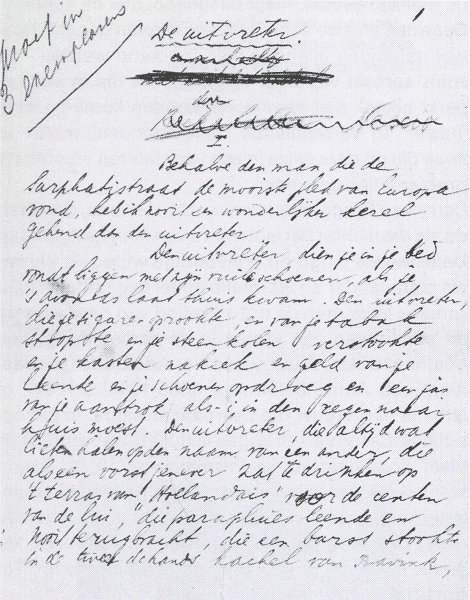 Proef in
3 exemplaren
1
De uitvreter.
door
I.
Behalve den man, die de
Sarphatistraat de mooiste plek van Europa
vond, heb ik nooit een wonderlijker kerel
gekend dan den uitvreter
Den uitvreter, dien je in je bed
vondt liggen met zijn vuile schoenen, als je
's avonds laat thuis kwam. Den uitvreter,
die je sigaren oprookte, en van je tabak
stopte en je steenkolen verstookte
en je kasten nakeek en geld van je
leende en je schoenen opdroeg en een jas
van je aantrok, als-i, in den regen naar
huis moest. Den uitvreter, die altijd wat
liet halen op den naam van een ander, die
als een vorst jenever zat te drinken op
't terras van 'Hollandais' voor de centen
van de lui, die parapluies leende en
nooit terugbracht, die een barst stookte
in de tweedehands kachel van Bavink,